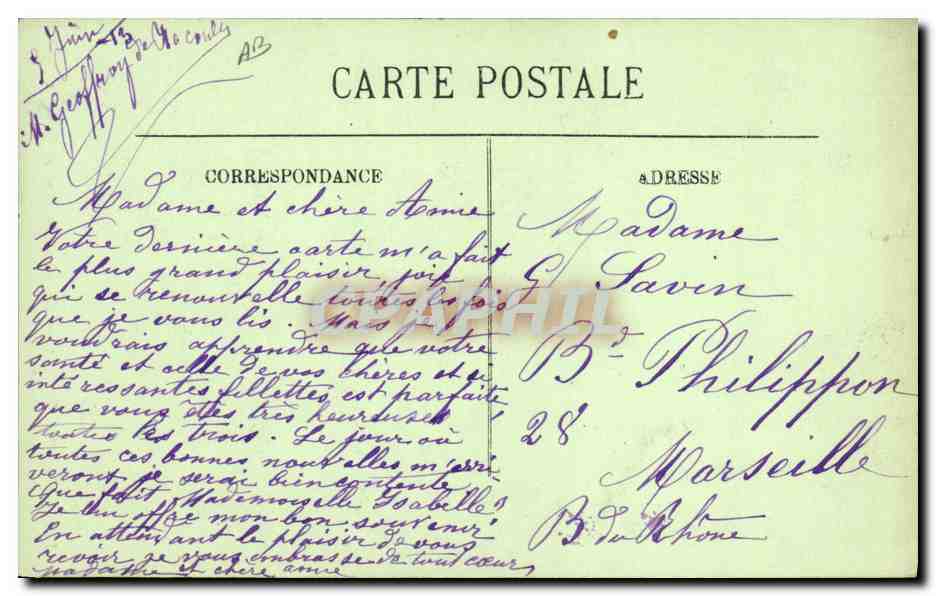 9 Juin 13
M. Geoffroy de
AB
CARTE POSTALE
CORRESPONDANCE
Madame et chère Amie
Votre dernière carte m'a fait
le plus grand plaisir, joie
qui se renouvelle toutes les fois
que je vous lis. Mais je
voudrais apprendre que votre
santé et celle de vos chères et si
intéressantes fillettes, est parfaite
que vous êtes très heureuses
toutes les trois. Le jour où
toutes ces bonnes nouvelles m'arri
veront je serai bien contente.
Que fait Mademoiselle Isabelle?
Je lui offre mon bon souvenir
En attendant le plaisir de vous
revoir je vous embrasse de tout cœur
madame et chère amie
ADRESSE
Madame
G Savin
Bd Philippon
28
Marseille
B du Rhône
CPAPHIL